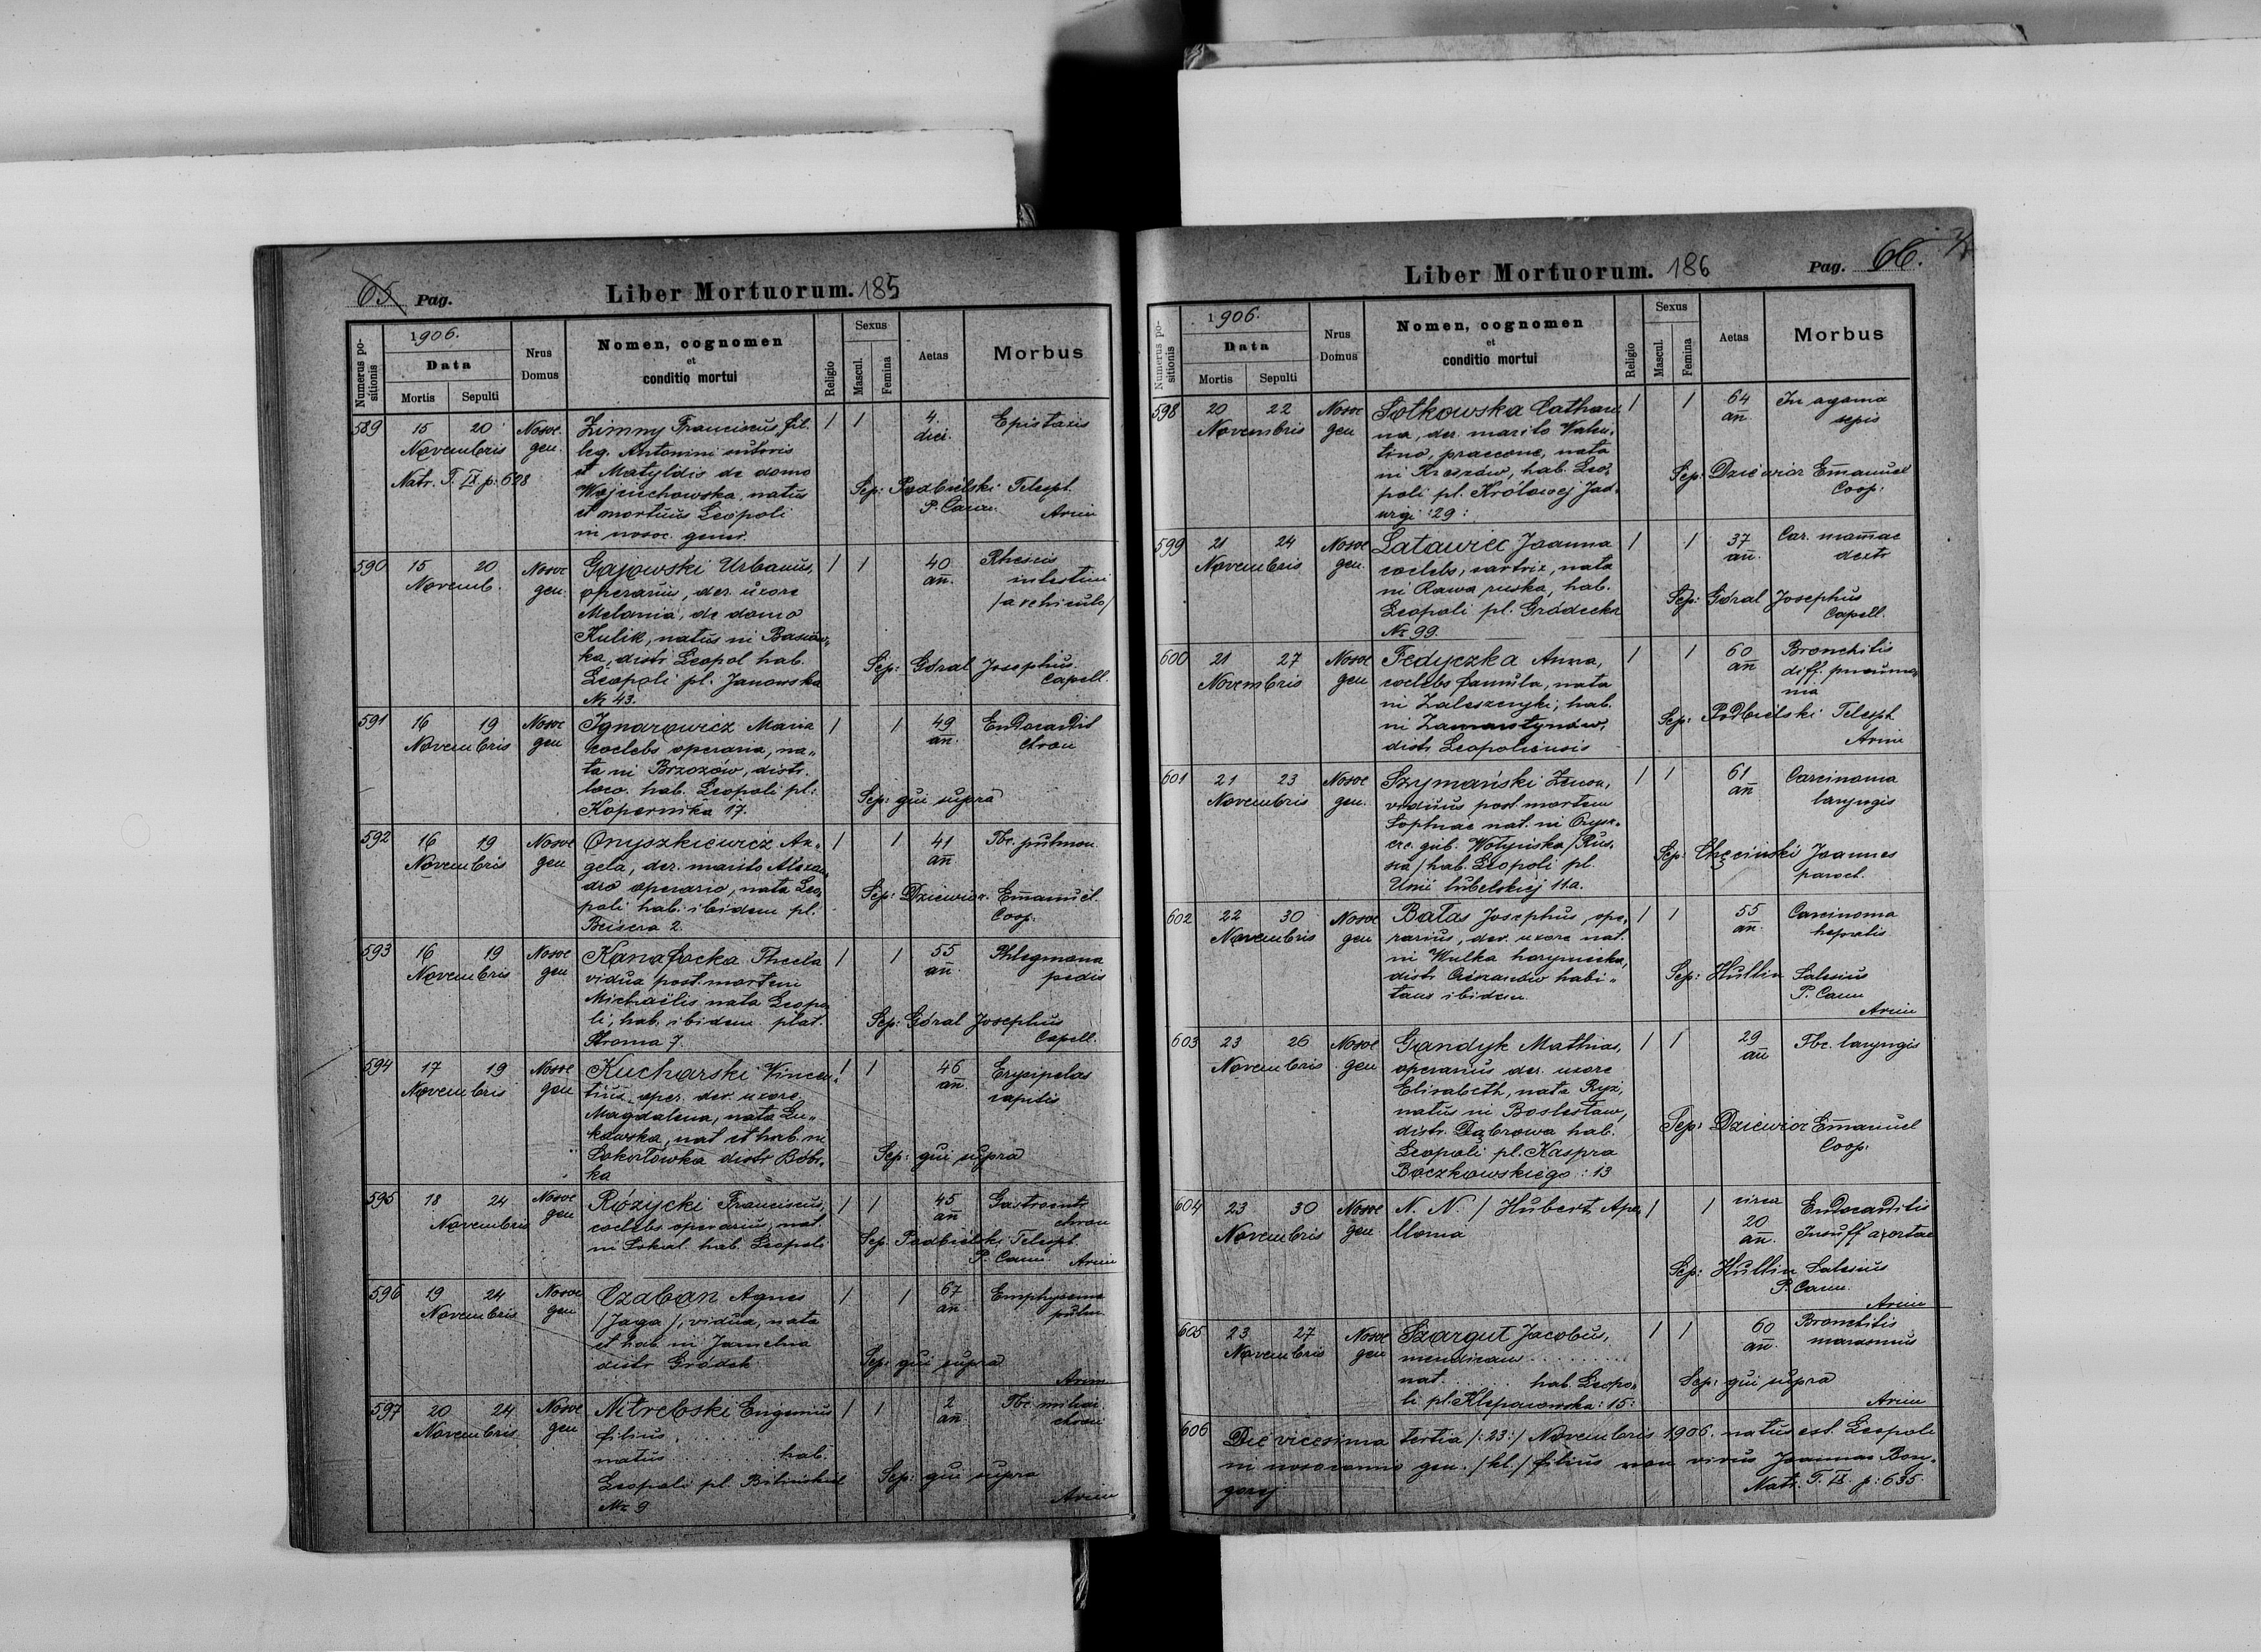 65 Pag. Liber Mortuorum. 185
Numerus positionis
1906.
Data
Mortis Sepulti
Nrus Domus
Nomen, cognomen
et
conditio mortui
Religio
Sexus
Mascul. Femina
Aetas
Morbus
589 15 20 Nosoc. Zimny Franciscus, fil. 1 1 4. Epistaxis
Novembris gen. leg. Antonini sutoris dies.
Natr. T. IX p: 628 et Matyldis de domo
Wojciechowska, natus Sep: Podbielski Telesph.
et mortuus Leopoli P. Cann. Arm
in nosoc. gener.
590 15 20 Nosoc Gajowski Urbanus, 1 1 40 Rhexis
Novemb. gen. operarius, der. uxore an. intestini
Melania, de domo /a vehiculo/
Kulik, natus in Basiów,,
ka, distr Leopol hab. Sep: Góral Josephus.
Leopoli pl. Janowska Capell.
Nr 43.
591 16 19 Nosoc Ignarowicz Maria 1 1 49 Endocardit
Novembris gen coelebs operaria, na,, an. chron
ta in Brzozów, distr.
loco. hab. Leopoli pl: Sep: qui supra
Kopernika 17.
592 16 19 Nosoc Onyszkiewicz An,, 1 1 41 Tbc. pulmon
Novembris gen gela, der. marito Alexan,, an
dro operario, nata Leo, Sep: Dziewior. Emanuel.
poli hab. ibidem pl. Coop.
Beisera 2.
593 16 19 Nosoc Kanafocka Thecla 1 1 55 Phlegmona
Novembris gen vidua post mortem an. pedis
Michaëlis nata Leopo
li, hab. ibidem plat. Sep: Góral Josephus
Stroma 7. Capell.
594 17 19 Nosoc Kucharski Vincen,, 1 1 46 Erysipelas
Novembris gen tius oper. der. uxore an. capitis
Magdalena, nata Lu,,
kawska, nat et hab. in
Sokołówka distr Bóbr,, Sep: qui supra
ka
595 18 24 Nosoc Rózijcki Franciscus, 1 1 45 Gastroint
Novembris gen coelebs operarius, nat. an chron
in Sokal. hab. Leopoli Sep: Podbielski Telesph.
P. Cann. Arm
596 19 24 Nosoc Czaban Agnes 1 1 67 Emphysema
Novembris gen /Jaga/, vidua, nata an. pulm.
et hab. in Jamelna
distr Gródek Sep: qui supra
Arm
597 20 24 Nosoc Nitrebski Eugenius 1 1 2 Tbc. miliar.
Novembris gen filius . . . an. chron
natus . . . hab.
Leopoli pl. Sep: qui supra
Nr 9 Arm
Liber Mortuorum. 186 Pag. 66.
Numerus positionis
1906.
Data
Mortis Sepulti
Nrus Domus
Nomen, cognomen
et
conditio mortui
Religio
Sexus
Mascul. Femina
Aetas
Morbus
598 20 22 Nosoc Sotkowska Cathari 1 1 64 In agonia
Novembris gen na, der. marito Valen,, an sepis
tino, praecone, nata
in hab. Leo, Sep: Dziewior Emanuel
poli pl. Królowej Jad. Coop:
wigi :29:
599 21 24 Nosoc Latawiec Joanna 1 1 37 Car. mammae
Novembris gen. coelebs, sartrix, nata an. dextr
in Rawa ruska, hab. Sep: Góral Josephus
Leopoli pl. Gródecka Capell.
Nr 99.
600 21 27 Nosoc Fedyczka Anna, 1 1 60 Bronchitis
Novembris gen coelebs famula, nata an diff. pneumo,
in Zaleszczyki, hab. nia
in Zamarstynów, Sep: Podbielski Telesph.
distr Leopoliensis Arm
601 21 23 Nosoc Szymański Zenon, 1 1 61 Carcinoma
Novembris gen. viduus post mortem an laryngis
Sophiae nat. in
gub. Wołyńska /Rus, Sep: Chęciński Joannes
sia/ hab. Leopoli pl. paroch.
Unii lubelskiej 11a.
602 22 30 Nosoc Bałas Josephus, ope, 1 1 55 Carcinoma
Novembris gen rarius, der. uxore nat. an. hepatis
in Wulka horyniecka,
distr Cieszanów habi,, Sep: Hullin Salesius
tans ibidem. P. Cann
Arm
603 23 26 Nosoc Gandyk Mathias, 1 1 29 Tbc. laryngis
Novembris gen operarius der. uxore an
Elisabeth, nata Ryz,
natus in Bolesław,
distr. Dąbrowa hab. Sep: Dziewior Emanuel
Leopoli pl. Kaspra Coop.
Boczkowskiego :13
604 23 30 Nosoc N. N. / Hubert Apo, 1 1 circa Endocarditis
Novembris gen llonia 20 Insuff aortae
an.
Sep: Hullin Salesius
P. Cann.
Arm
605 23 27 Nosoc Szargut Jacobus, 1 1 60 Bronchitis
Novembris gen mendicans . . . . . an. marasmus
nat. . . . hab. Leopo, Sep: qui supra
li pl. Kleparowska :15: Arm
606 Die vicesima tertia /:23:/ Novembris 1906. natus est. Leopoli
in nosocomio gen. /kl./ filius non vivus Joannae Bon,,
garej Natr. T. IX. p: 635